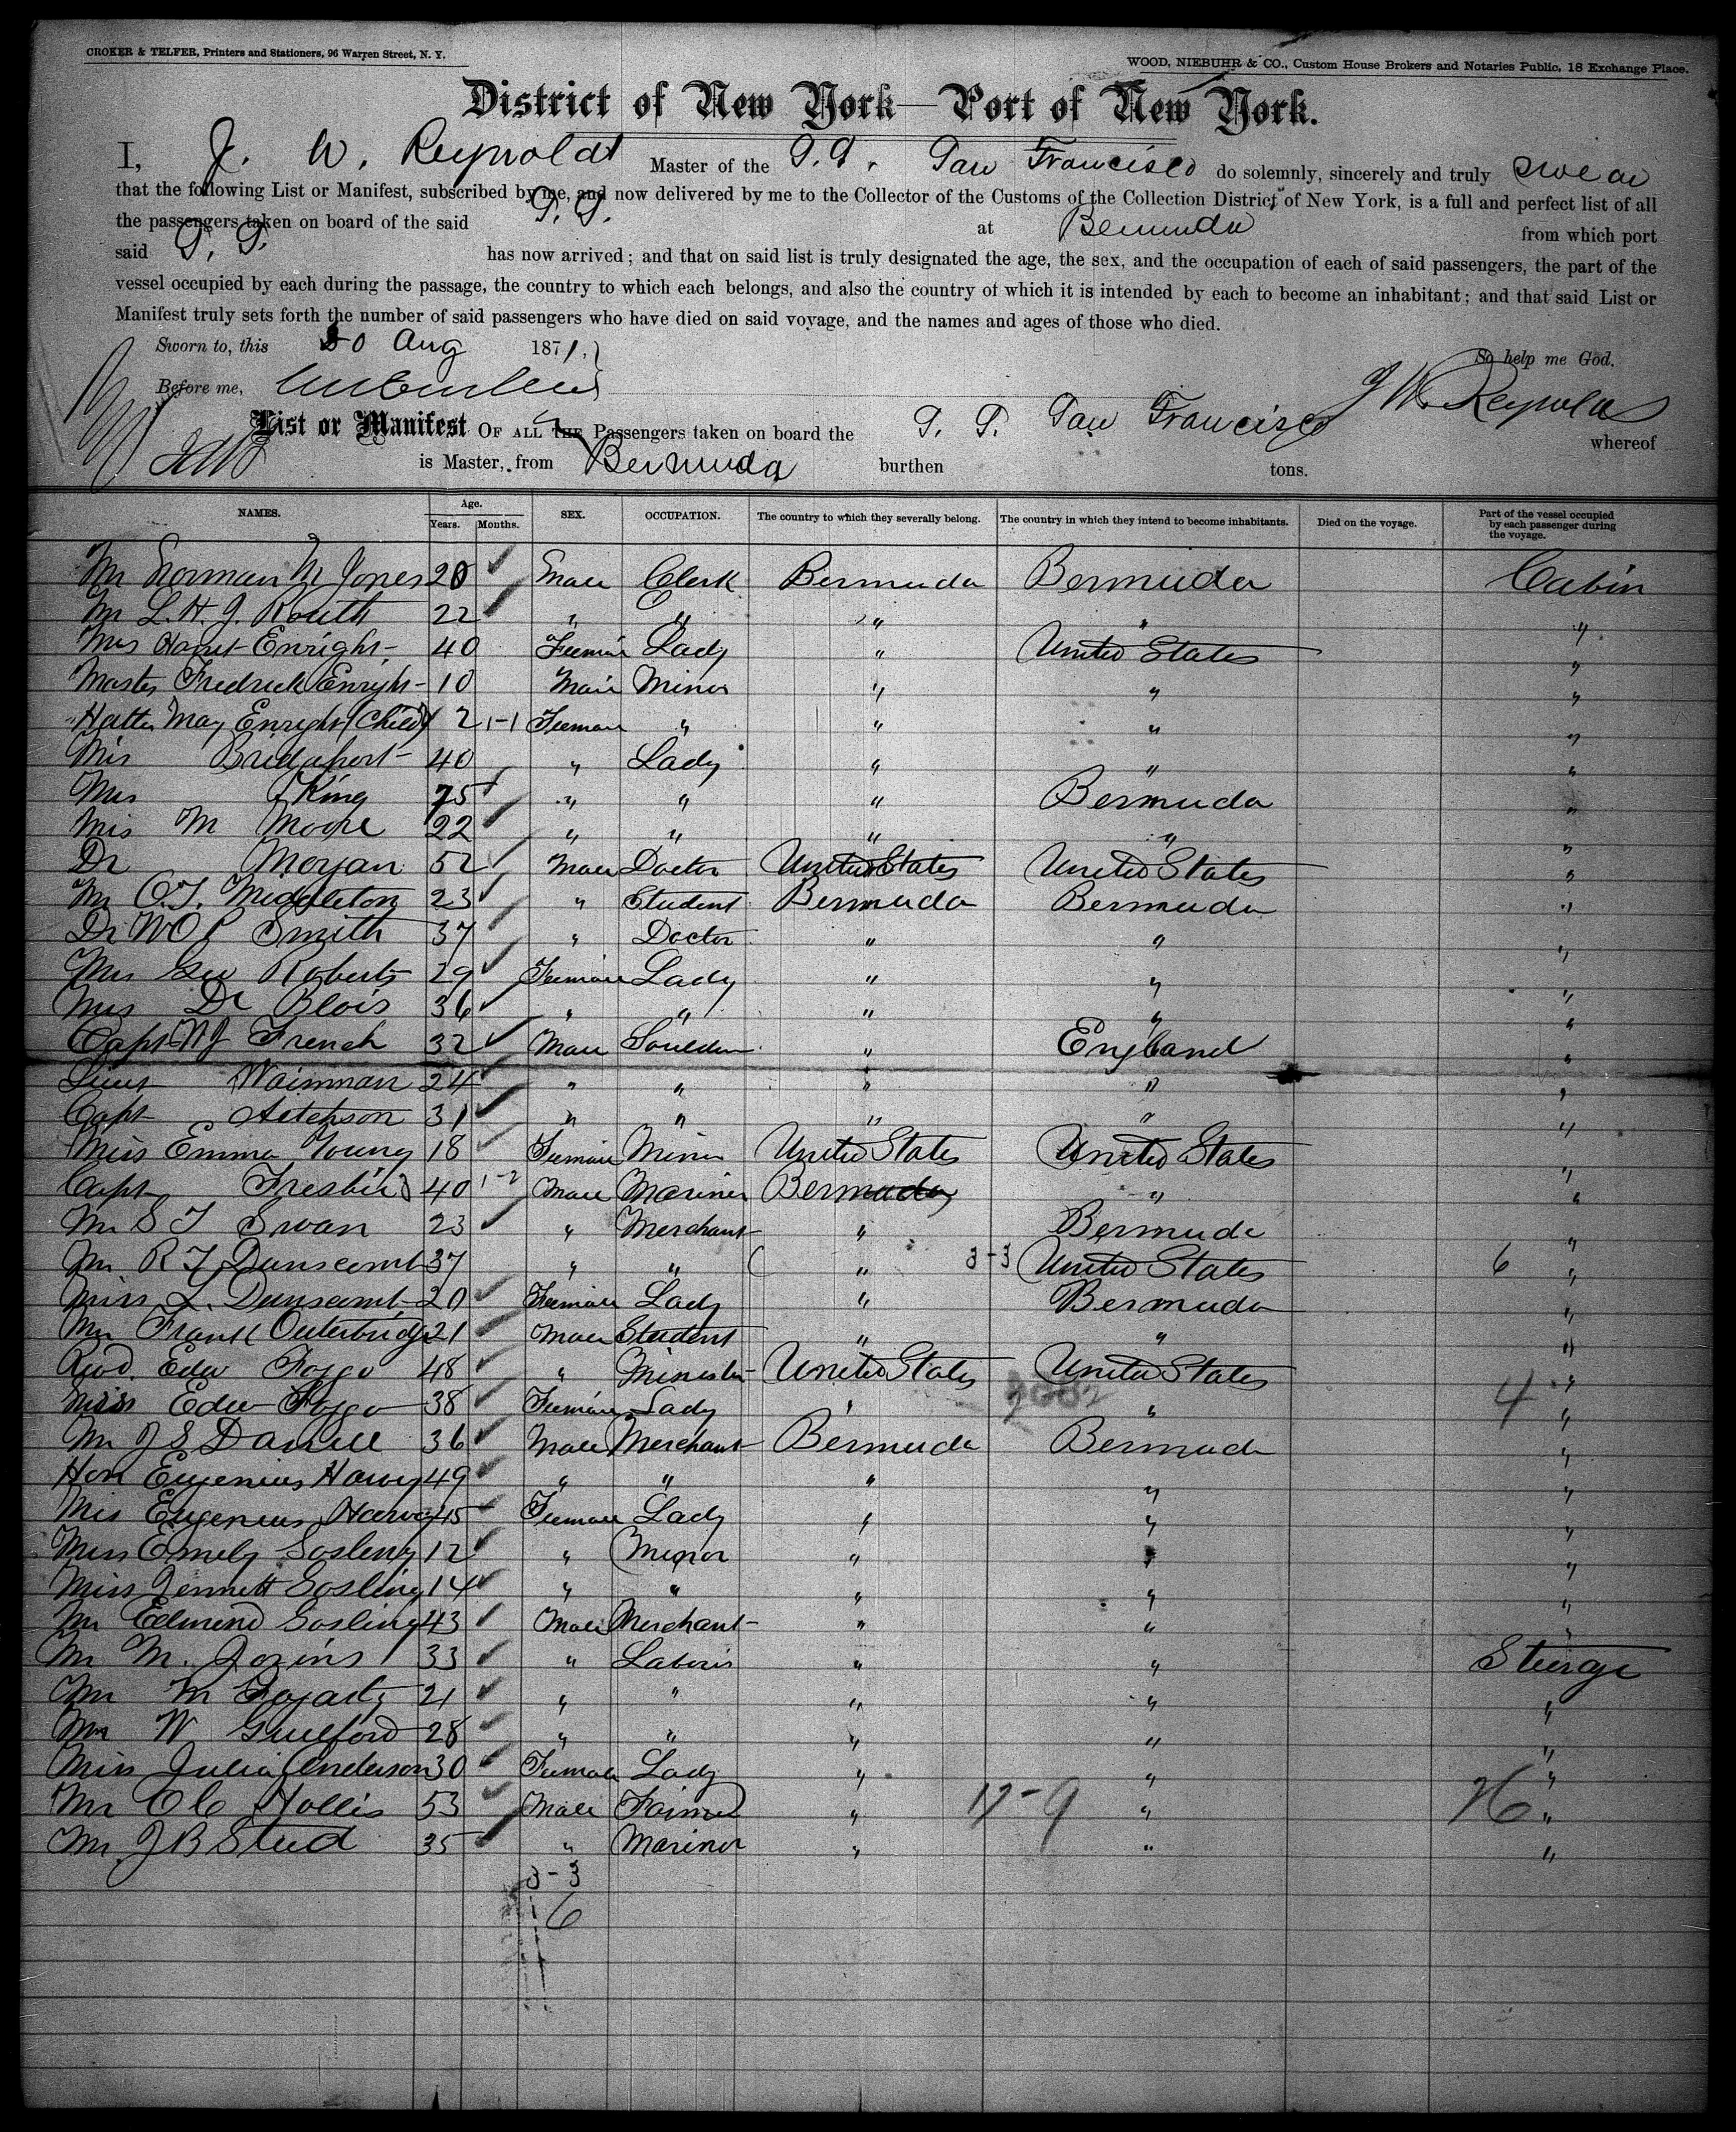 CROKER & TELFER, Printers and Stationers, 96 Warren Street, N. Y.
WOOD, NIEBUHR & CO., Custom House Brokers and Notaries Public, 18 Exchange Place.
District of New York—Port of New York.
I, J. W. Reynolds Master of the S.S. San Francisco do solemnly, sincerely and truly swear
that the following List or Manifest, subscribed by me, and now delivered by me to the Collector of the Customs of the Collection District of New York, is a full and perfect list of all
the passengers taken on board of the said S. S. at Bermuda from which port
said S. S. has now arrived; and that on said list is truly designated the age, the sex, and the occupation of each of said passengers, the part of the
vessel occupied by each during the passage, the country to which each belongs, and also the country of which it is intended by each to become an inhabitant; and that said List or
Manifest truly sets forth the number of said passengers who have died on said voyage, and the names and ages of those who died.
Sworn to, this Aug 1871. So help me God.
Before me, J W. Reynolds
List or Manifest OF ALL THE Passengers taken on board the S. S. San Francisco whereof
is Master, from Bermuda burthen tons.
NAMES. Age. Years. Months. SEX. OCCUPATION. The country to which they severally belong. The country in which they intend to become inhabitants. Died on the voyage. Part of the vessel occupied by each passenger during the voyage.
Mr Norman M Jones 20 Male Clerk Bermuda Bermuda Cabin
Mr L. H. J. Routh 22 " " " " "
Mrs Enright 40 Female Lady " United States "
Master Fredrick Enright 10 Male Minor " " "
" Hattie May Enright (Child) 2 1-1 Female " " " "
Mrs Bridgeport 40 " Lady " " "
Mrs King 75 " " " Bermuda "
Mis M Moore 22 " " " " "
Dr Morgan 52 Male Doctor United States United States "
Mr C. T. Middleton 23 " Student Bermuda Bermuda "
Dr W O J Smith 37 " Doctor " " "
Mrs Geo Roberts 29 Female Lady " " "
Mrs Dr Blois 36 " " " " "
Capt W J French 32 Male " England "
Lieut Wainman 24 " " " " "
Capt Aitchson 31 " " " " "
Miss Emma Young 18 Female Minor United States United States "
Capt 40 1-2 Male Mariner Bermuda " "
Mr S T Swan 23 " Merchant " Bermuda "
Mr R T Dunscomb 37 " " " 3-3 United States 6 "
Miss L. Dunscomb 20 Female Lady " Bermuda "
Mr Frank Outerbridge 21 Male Student " " "
Revd. Edw Foggo 48 " Minister United States United States "
Edw Foggo 38 Female Lady " " 4 "
Mr J S Darrell 36 Male Merchant Bermuda Bermuda "
Hon Eugenius Harvey 49 " " " " "
Mrs Eugenius Harvey 45 Female Lady " " "
Miss Emely Gosling 12 " Minor " " "
Miss Jennett Gosling 14 " " " " "
Mr Edmund Gosling 43 Male Merchant " " "
Mr M. 33 " " " Steerage
Mr M Fogarty 21 " " " " "
Mr W Guilford 28 " " " " "
Miss Julia Anderson 30 Female Lady " " "
Mr Hollis 53 Male Farmer " 17-9 " 26 "
Mr J B Steed 35 " Mariner " " "
3-3
6